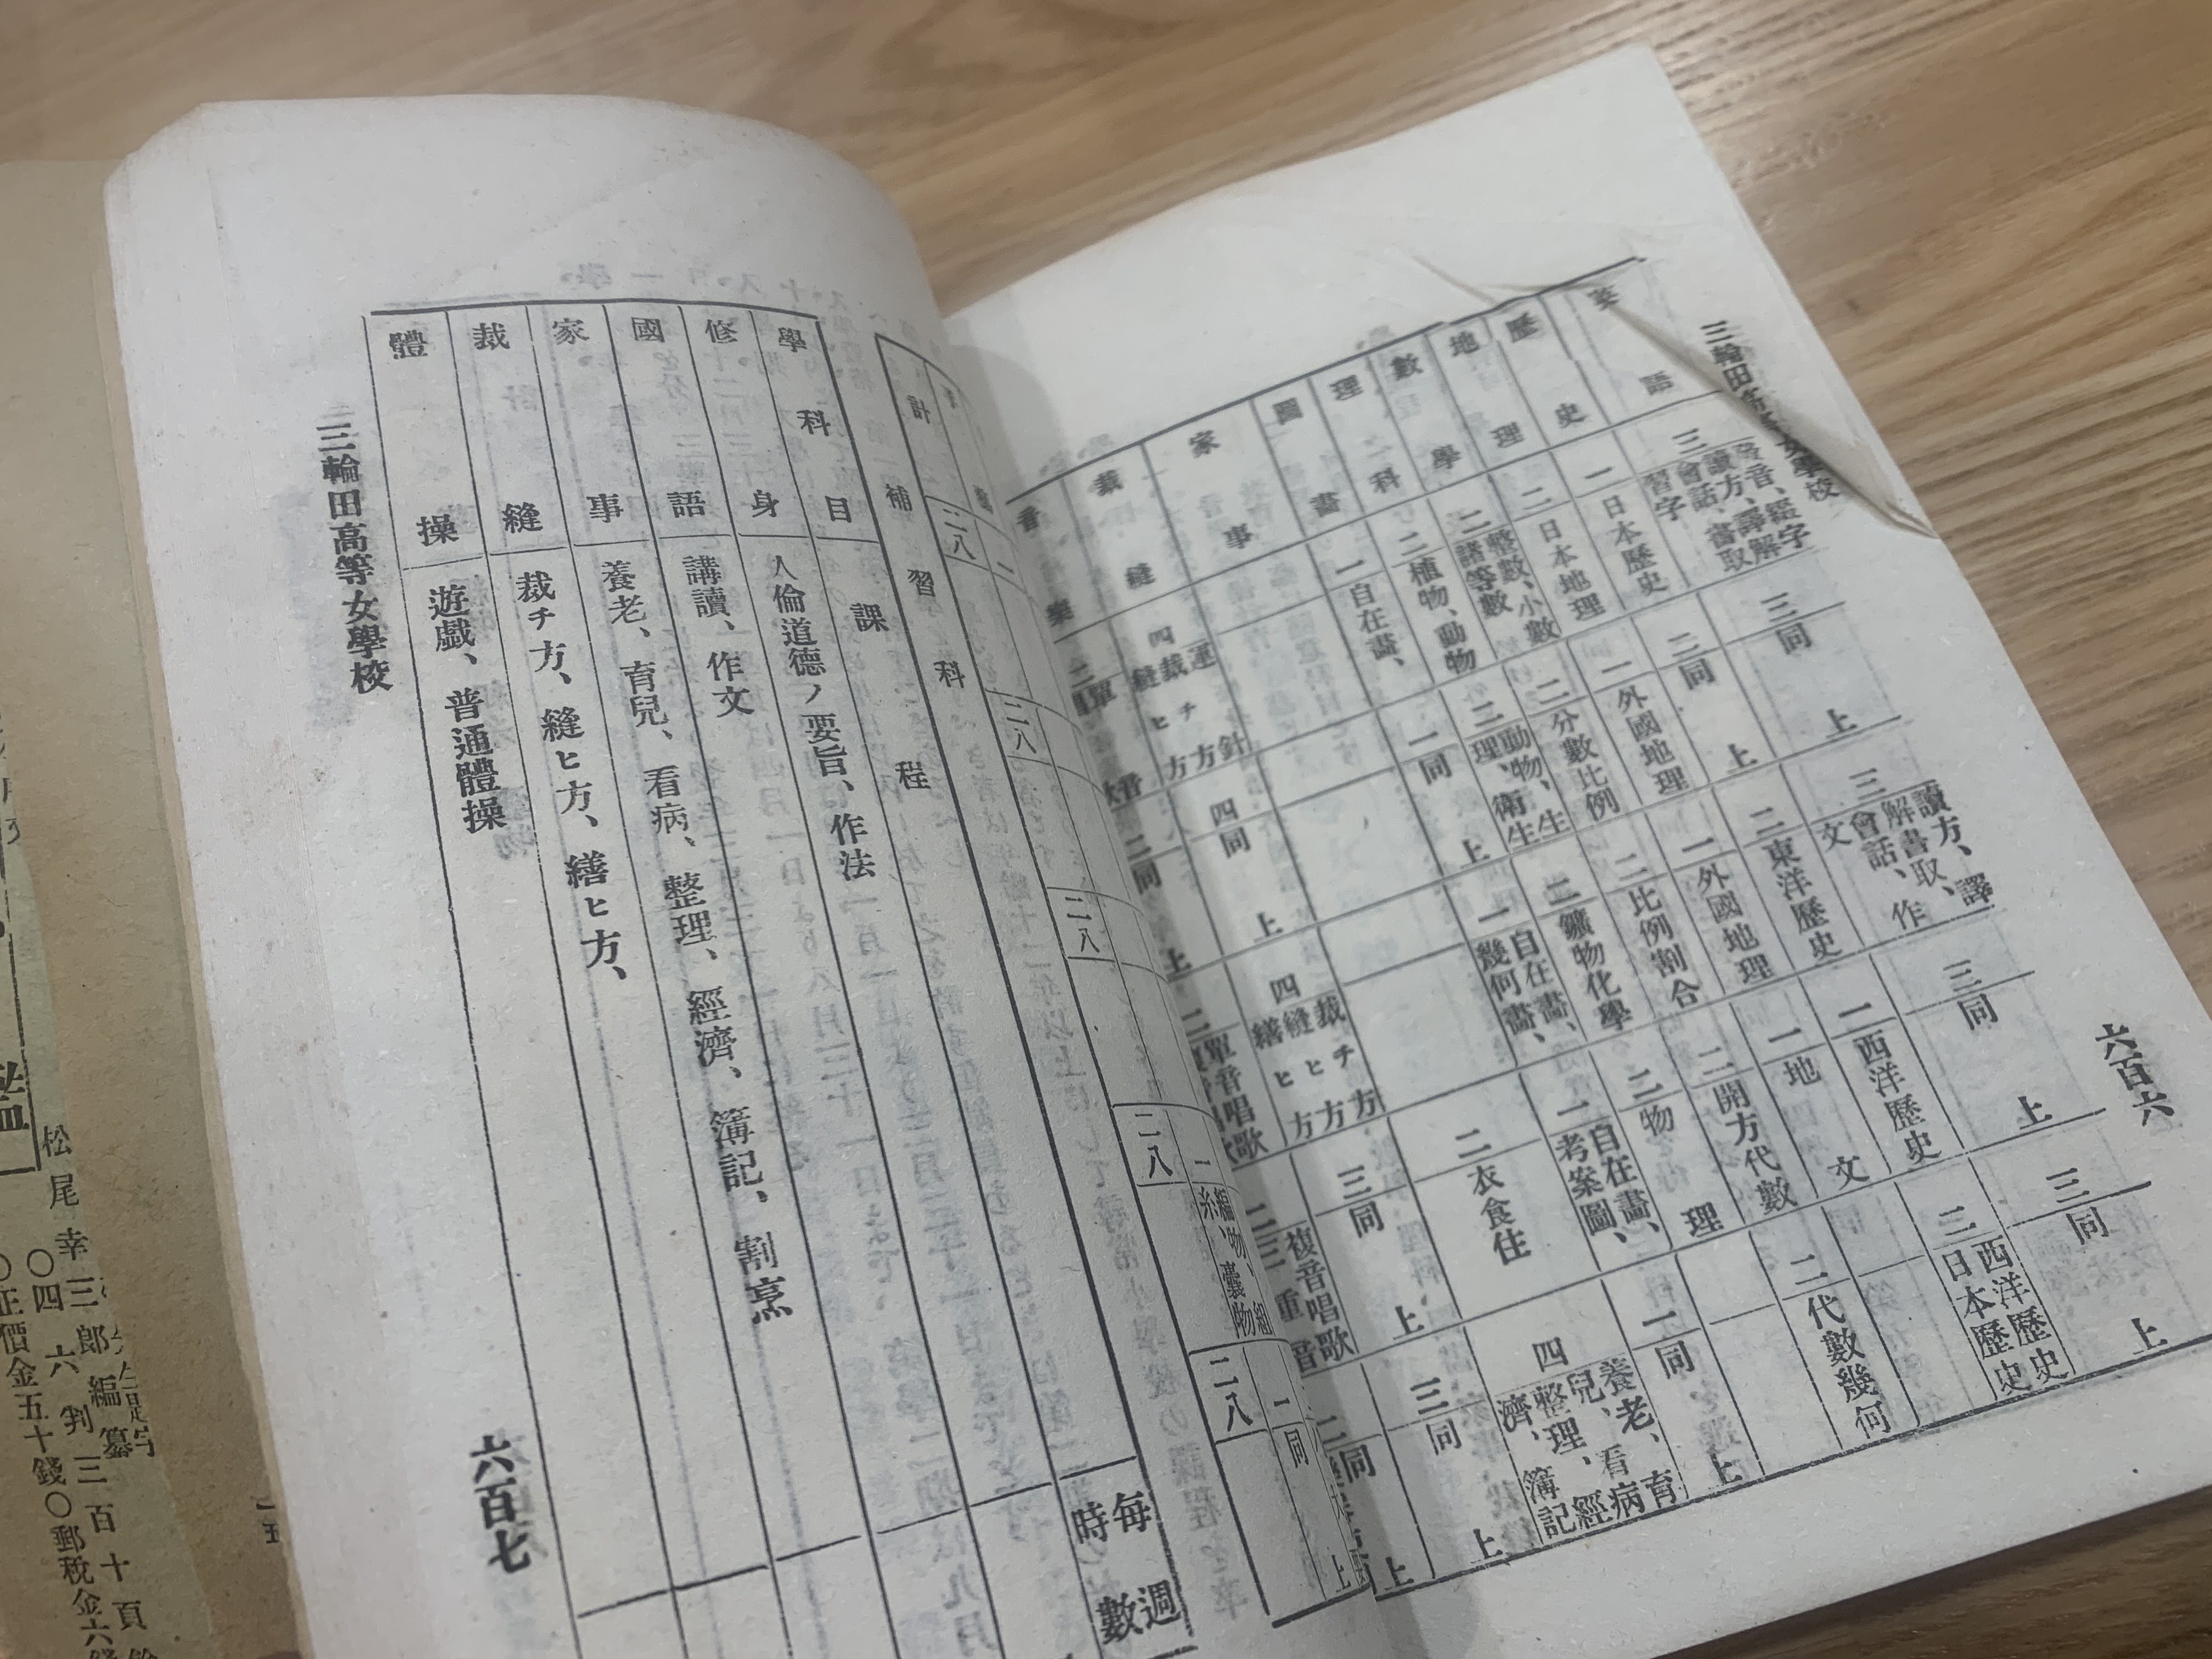 三輪田高等女學校
六百六
英語
三 發音、綴字、讀方、譯解、會話、書取、習字
三 同上
三 讀方、譯解、書取、會話、作文
三 同上
三 同上
歷史
一 日本歷史
二 同上
二 東洋歷史
一 西洋歷史
二 西洋歷史 日本歷史
地理
二 日本地理
一 外國地理
一 外國地理
一 地文
數學
二 整數、小數 諸等數
二 分數比例
二 比例割合
二 開方代數
二 代數幾何
理科
二 植物、動物
二 動物、生理、衛生
二 鑛物化學
二 物理
圖畫
一 自在畫、
一 同上
一 自在畫、幾何畫、
一 自在畫、考案圖、
一 同上
家事
二 衣食住
四 養老、育兒、看病、整理、經濟、簿記
裁縫
四 運針 裁チ方 縫ヒ方
四 同上
四 裁チ方 縫ヒ方 繕ヒ方
三 同上
三 同上
音樂
二
二 同上
二 單音唱歌
二 複音唱歌
二 同
一
一 編物、組糸、囊物
一 同上
計
二八
二八
二八
二八
二八
補習科
學科目
課程
每週時數
修身
人倫道德ノ要旨、作法
國語
講讀、作文
家事
養老、育兒、看病、整理、經濟、簿記、割烹
裁縫
裁チ方、縫ヒ方、繕ヒ方、
體操
遊戲、普通體操
三輪田高等女學校
六百七
松尾幸三郎編纂
〇四六判三百十頁
〇正價金五十錢〇郵稅金六錢